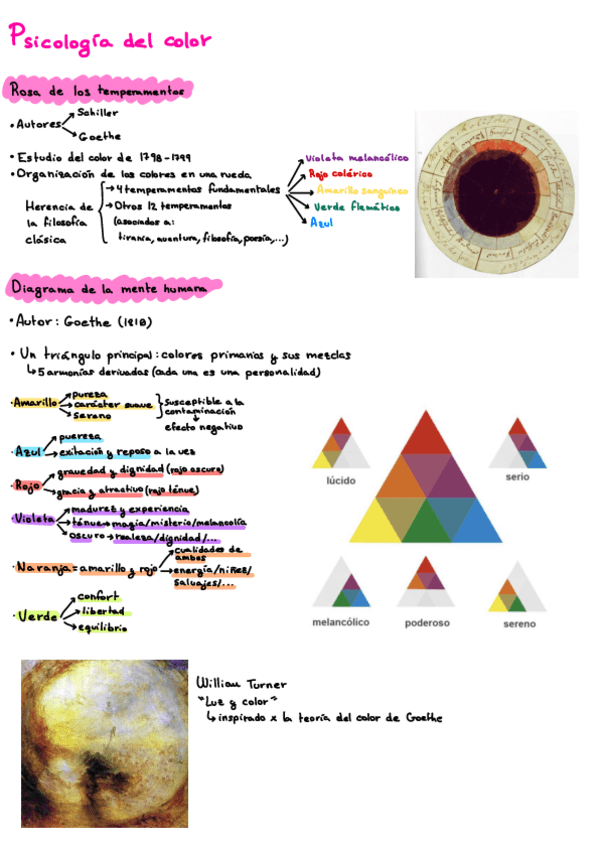 Psicología del color
Rosa de los temperamentos
• Autores
Schiller
Goethe
• Estudio del color de 1798-1799
• Organización de los colores en una rueda
Herencia de
la filosofía
clásica
→ 4 temperamentos fundamentales
→ Otros 12 temperamentos
(asociados a:
tiranía, aventura, filosofía, poesía,...)
Violeta melancólico
Rojo colérico
Amarillo sanguíneo
Verde flemático
Azul
Diagrama de la mente humana
• Autor: Goethe (1810)
• Un triángulo principal: colores primarios y sus mezclas
↳ 5 armonías derivadas (cada una es una personalidad)
• Amarillo
pureza
carácter suave
sereno
Susceptible a la
contaminación
efecto negativo
• Azul
puereza
exitación y reposo a la ves
• Rojo
gravedad y dignidad (rojo oscuro)
gracia y atractivo (rojo ténue)
• Violeta
madurez y experiencia
ténue → magia/misterio/melancolía
oscuro → realeza/dignidad/...
• Naranja = amarillo y rojo
cualidades de
ambos
energía/niñez/
salvajes/...
• Verde
confort
libertad
equilibrio
lúcido
serio
melancólico
poderoso
sereno
William Turner
"Luz y color"
↳ inspirado x la teoría del color de Goethe